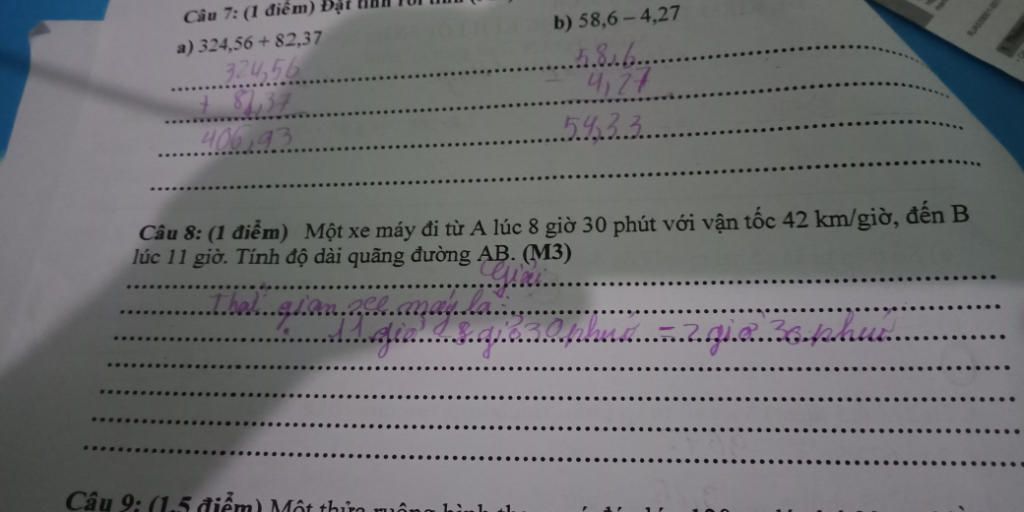 Câu 7: (1 điểm) Đặt tính rồi
a) 324,56 + 82,37
b) 58,6 – 4,27
324,56
+ 82,37
406,93
58,6
– 4,27
54,33
Câu 8: (1 điểm) Một xe máy đi từ A lúc 8 giờ 30 phút với vận tốc 42 km/giờ, đến B
lúc 11 giờ. Tính độ dài quãng đường AB. (M3)
Giải
gian xe máy là:
11 giờ 8 giờ 30 phút = 2 giờ 30 phút
Câu 9: (1,5 điểm) Một thửa ruộng hình